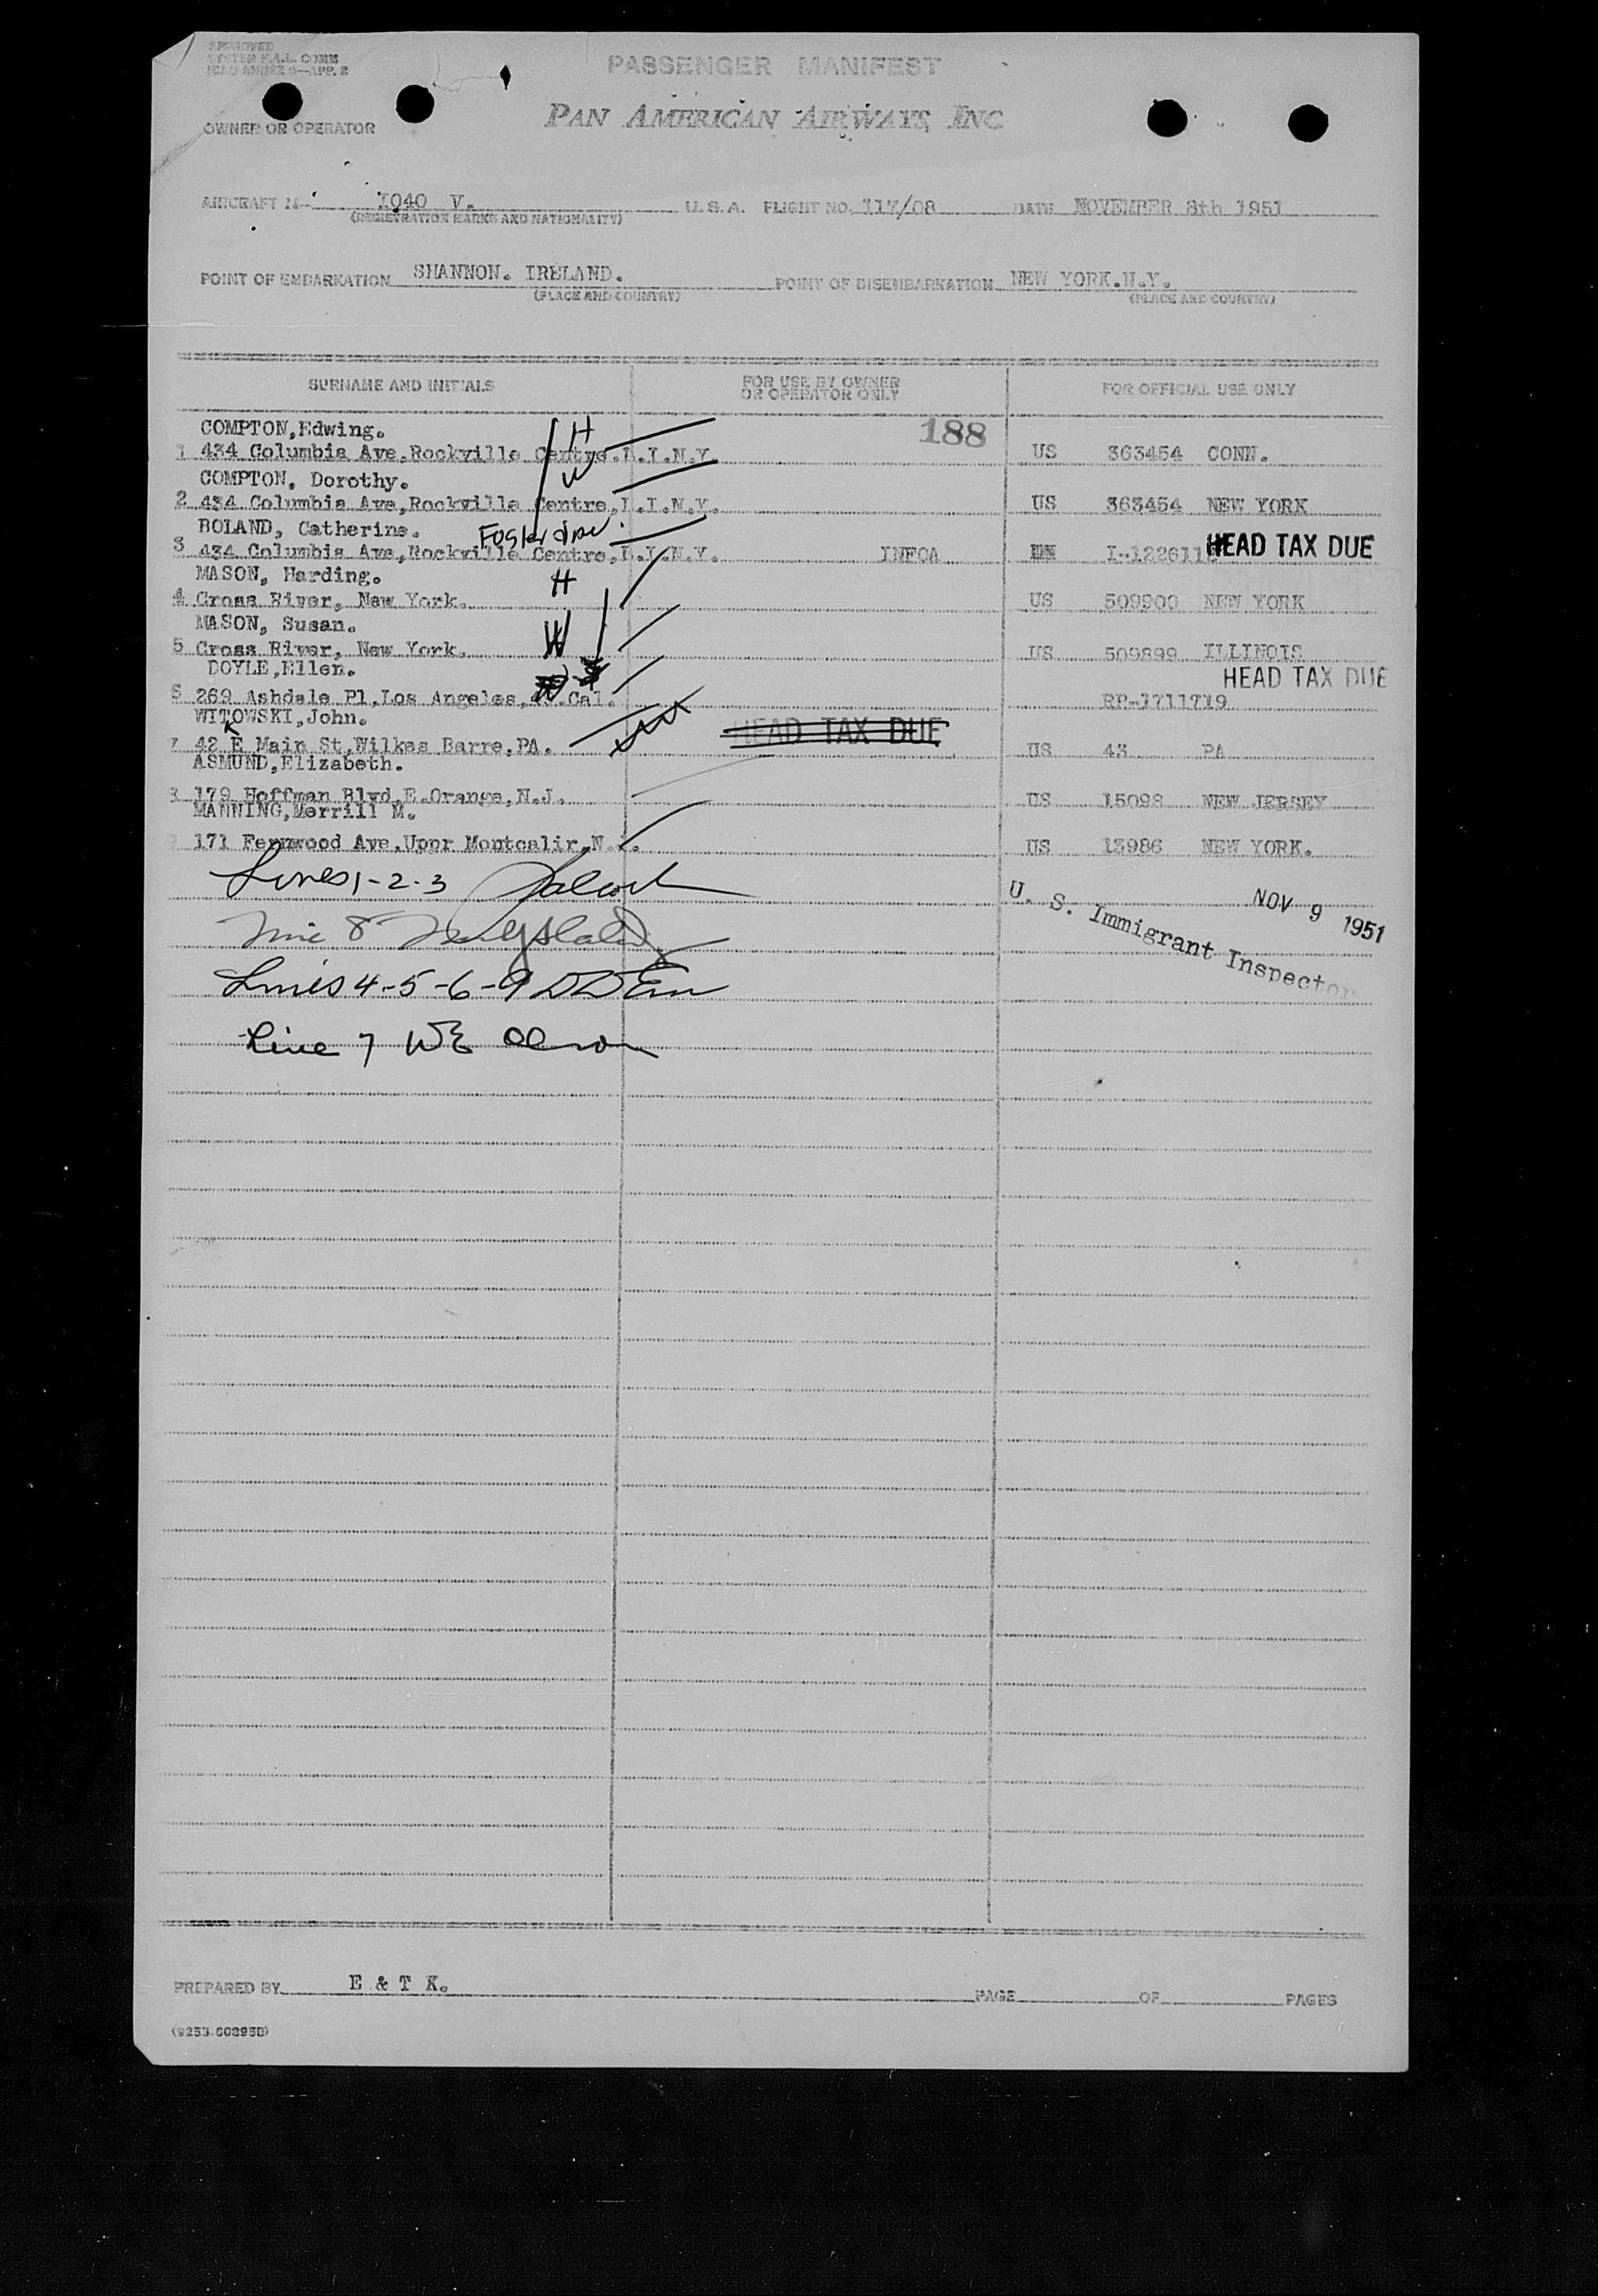 APPROVED
SYSTEM F.A.L. COMM
ICAO ANNEX 9—APP. 2
PASSENGER MANIFEST
OWNER OR OPERATOR
PAN AMERICAN AIRWAYS, INC
AIRCRAFT N 1040 V. U.S.A. FLIGHT NO. 117/08 DATE NOVEMBER 8th 1951
(REGISTRATION MARKS AND NATIONALITY)
POINT OF EMBARKATION SHANNON. IRELAND. POINT OF DISEMBARKATION NEW YORK.N.Y.
(PLACE AND COUNTRY) (PLACE AND COUNTRY)
SURNAME AND INITIALS FOR USE BY OWNER OR OPERATOR ONLY FOR OFFICIAL USE ONLY
COMPTON,Edwing. H 188
1 434 Columbia Ave,Rockville Centre.L.I.N.Y. US 363454 CONN.
COMPTON, Dorothy. W
2 434 Columbia Ave,Rockville Centre,L.I.N.Y. US 363454 NEW YORK
BOLAND, Catherine. Foster
3 434 Columbia Ave,Rockville Centre,L.I.N.Y. INFOA I-122611 HEAD TAX DUE
MASON, Harding. H
4 Cross River, New York. US 509900 NEW YORK
MASON, Susan.
5 Cross River, New York. W US 509899 ILLINOIS
DOYLE,Ellen. HEAD TAX DUE
6 269 Ashdale Pl.Los Angeles, Cal. RP-1711719
WITOWSKI,John. HEAD TAX DUE
K
7 42 E Main St,Wilkes Barre,PA. US 43 PA
ASMUND,Elizabeth.
8 179 Hoffman Blvd,E.Orange,N.J. US 15098 NEW JERSEY
MANNING,Merrill M.
9 171 Fernwood Ave,Uppr Montcalir,N. US 13986 NEW YORK.
Lines 1-2-3
U. S. Immigrant Inspector NOV 9 1951
Line 8
Lines 4-5-6-9
Line 7 WE Olson
PREPARED BY E & T K. PAGE OF PAGES